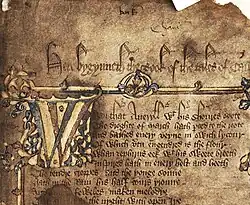 Here bygynneth the Book of the tales of
Whan that Aueryll wt his shoures soote
The droghte of March hath perced to the roote
And bathed euery veyne in swich licour
Of which vertu engendred is the flour
Whan zephirus eek wt his swete breeth
Inspired hath in euery holt and heeth
The tendre croppes and the yonge sonne
Hath in the Ram his half cours yronne
foweles maken melodye
nyght with open Iye